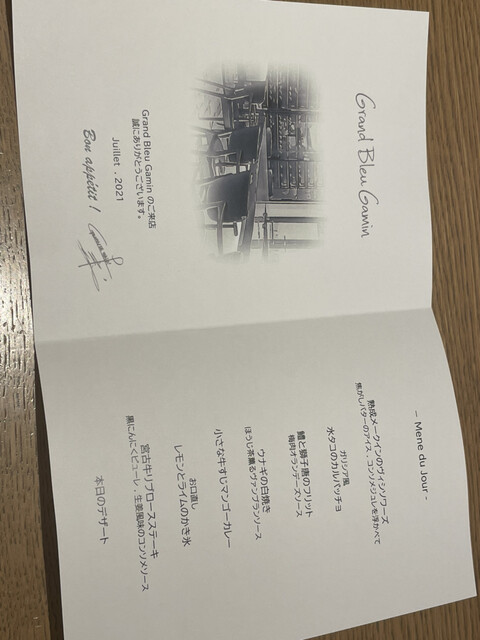 Grand Bleu Gamin
Grand Bleu Gamin のご来店
誠にありがとうございます。
Juillet . 2021
Bon appétit !
– Mene du Jour –
熟成メークインのヴィシソワーズ
焦がしバターのアイス・コンソメジュレを浮かべて
ガリシア風
水タコのカルパッチョ
鱧と獅子唐のフリット
梅肉オランデーズソース
ウナギの白焼き
ほうじ茶薫るヴァンブランソース
小さな牛すじマンゴーカレー
お口直し
レモンとライムのかき氷
宮古牛リブロースステーキ
黒にんにくピューレ・生姜風味のコンソメソース
本日のデザート